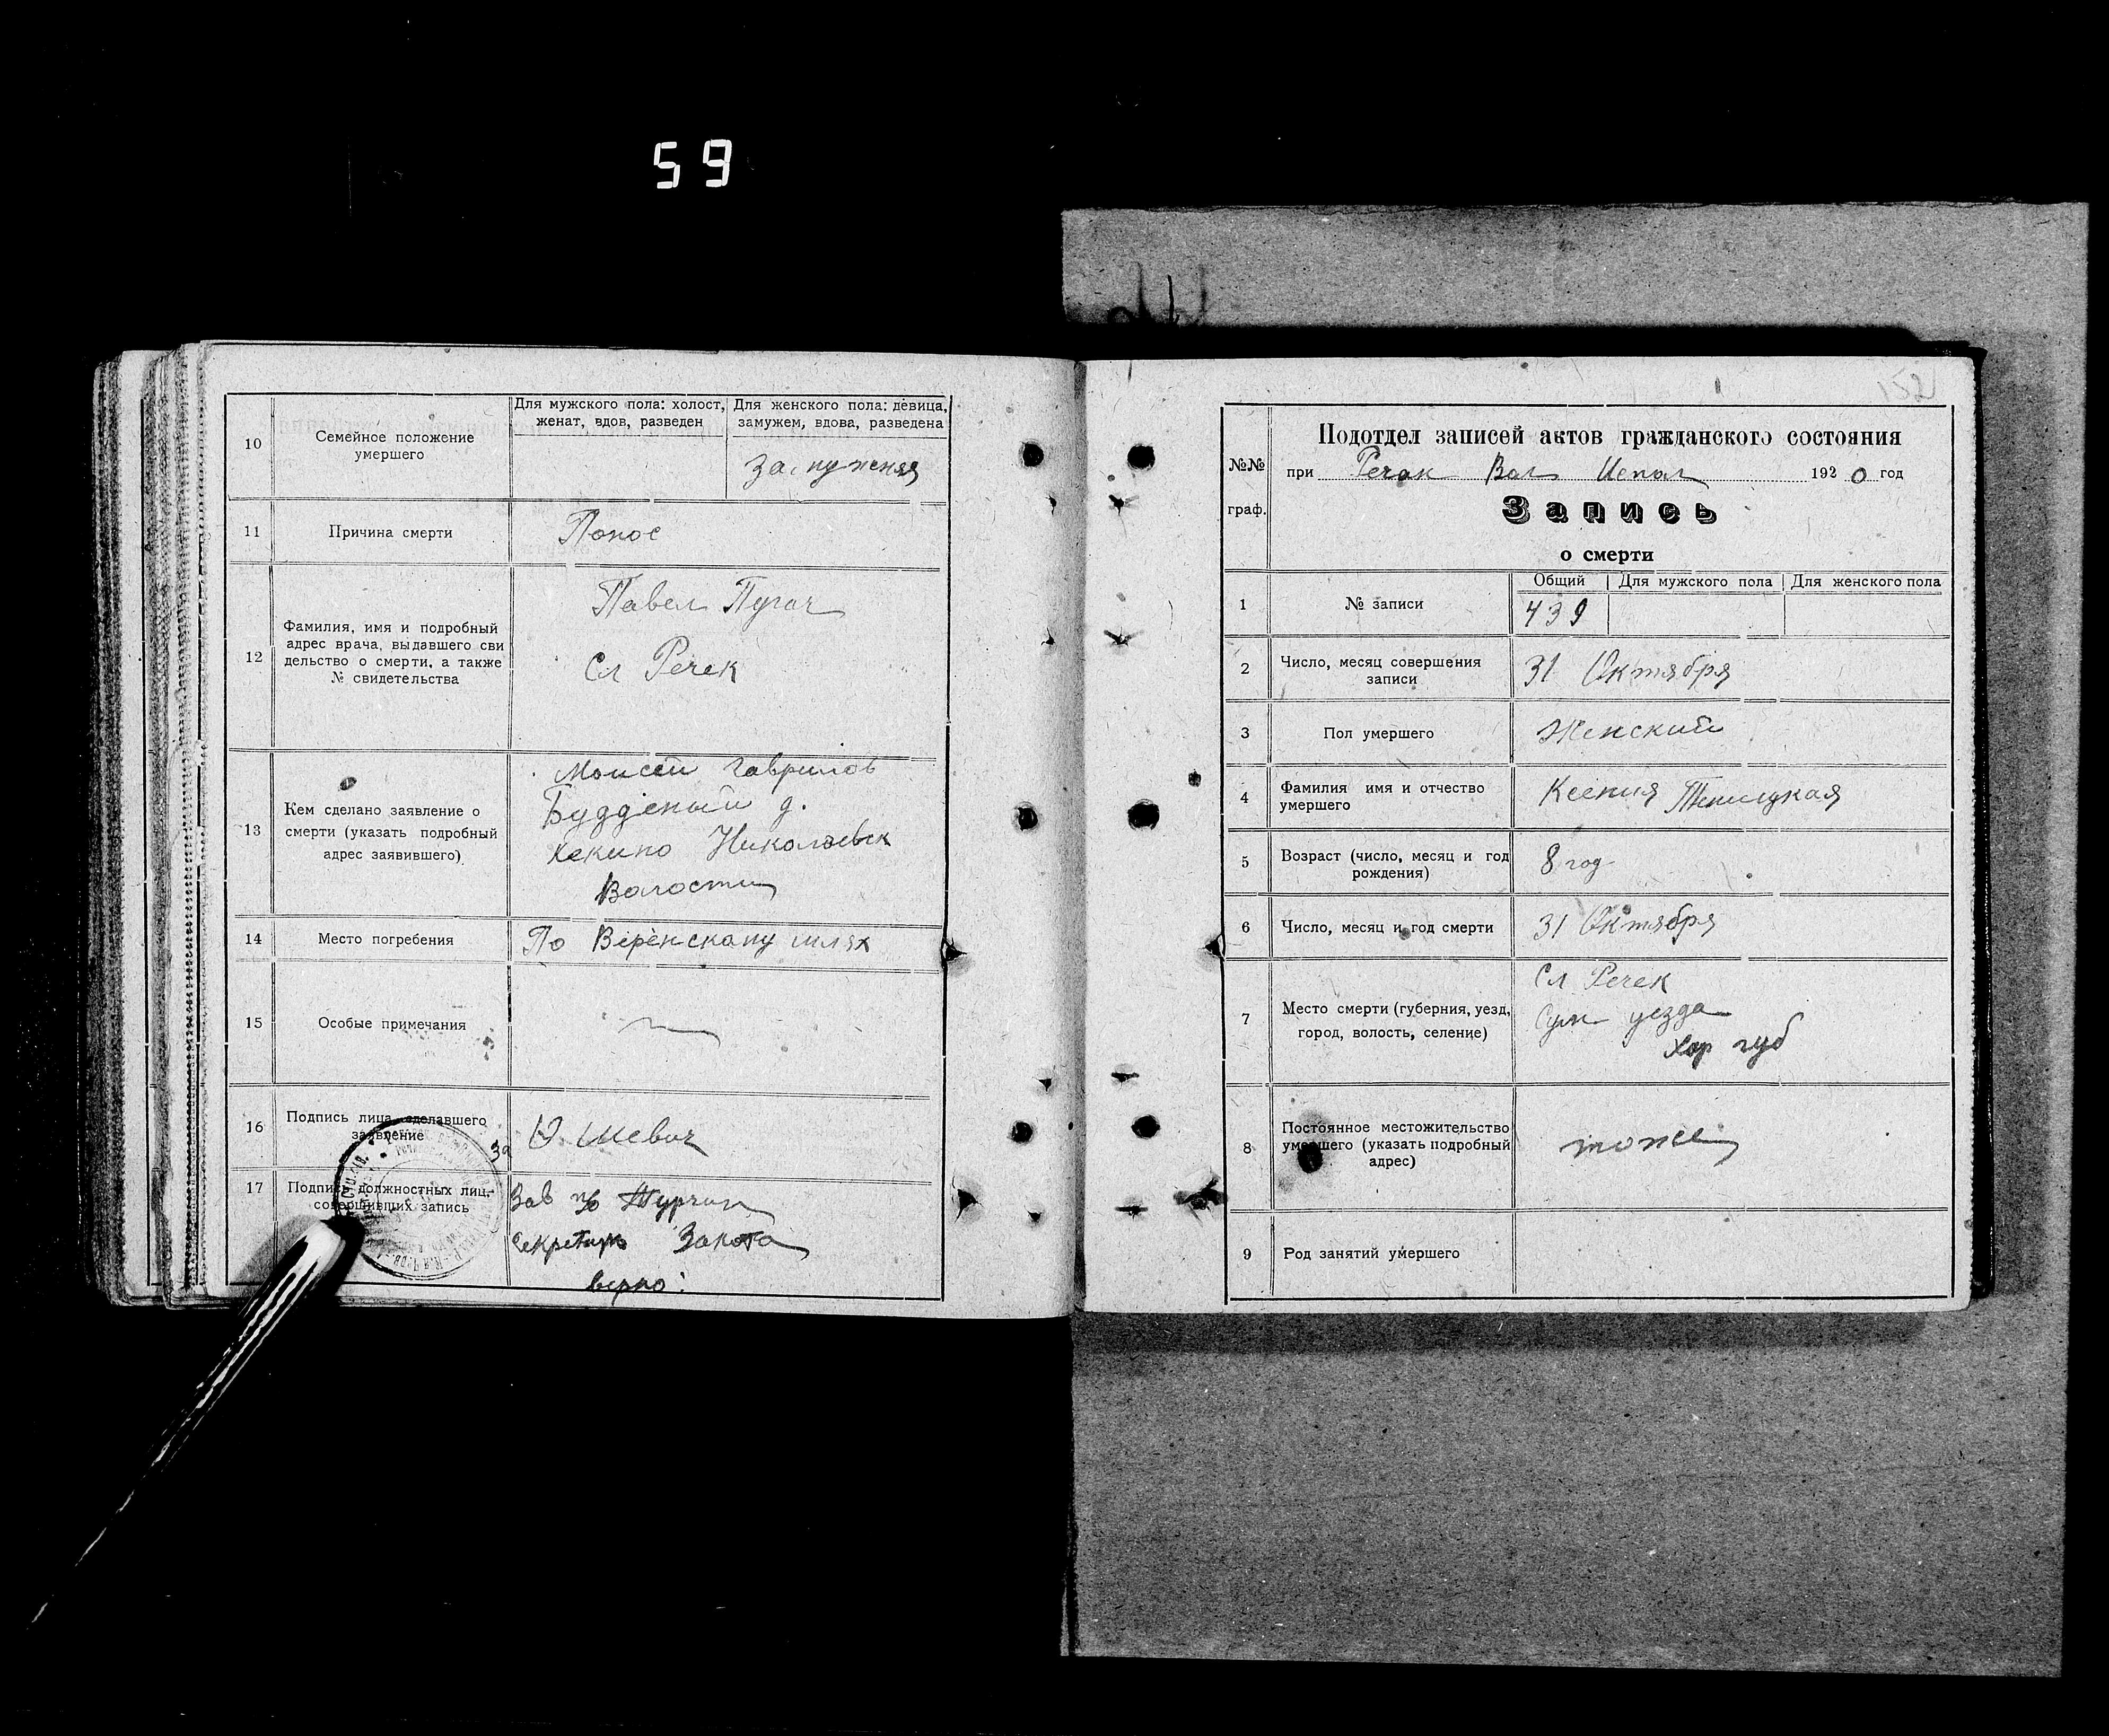 59
10
Семейное положение
умершего
Для мужского пола: холост,
женат, вдов, разведен
Для женского пола: девица,
замужем, вдова, разведена
Замужняя
11
Причина смерти
Понос
12
Фамилия, имя и подробный
адрес врача, выдавшего сви
дельство о смерти, а также
№ свидетельства
Павел Пугач
Сл Речек
13
Кем сделано заявление о
смерти (указать подробный
адрес заявившего)
Моисей Гаврилов
Будденый д.
Кекино Николаевск
Волости
14
Место погребения
По Веренскому шлях
15
Особые примечания
16
Подпись лица, сделавшего
заявление
За
17
Подпись должностных лиц,
совершивших запись
Зав
Секретарь
верно:
152
№№
граф.
Подотдел записей актов гражданского состояния
при Речак Вол Испол 1920 год
Запись
о смерти
1
№ записи
Общий
Для мужского пола
Для женского пола
439
2
Число, месяц совершения
записи
31 Октября
3
Пол умершего
Женский
4
Фамилия имя и отчество
умершего
Ксения
5
Возраст (число, месяц и год
рождения)
8 год
6
Число, месяц и год смерти
31 Октября
7
Место смерти (губерния, уезд,
город, волость, селение)
Сл Речек
Сум уезда
Хар губ
8
Постоянное местожительство
умершего (указать подробный
адрес)
тоже
9
Род занятий умершего